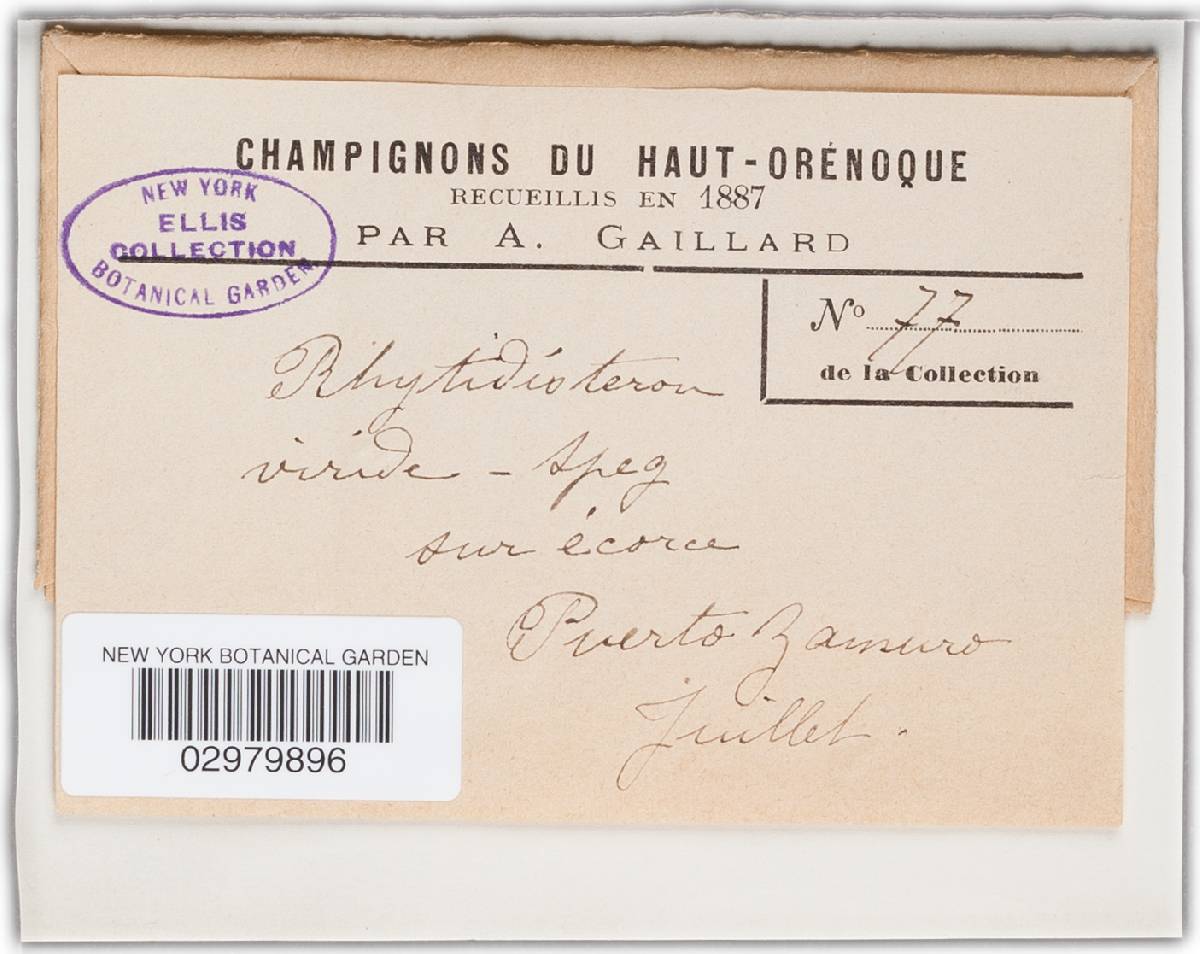 CHAMPIGNONS DU HAUT-ORÉNOQUE
RECUEILLIS EN 1887
PAR A. GAILLARD
NEW YORK
ELLIS
COLLECTION
BOTANICAL GARDEN
No 77
de la Collection
Rhytidisteron
viride - Speg
sur écorce
Puerto Zamuro
Juillet.
NEW YORK BOTANICAL GARDEN
02979896